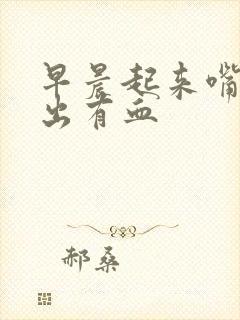 早晨起来嘴
出有血
郝桑